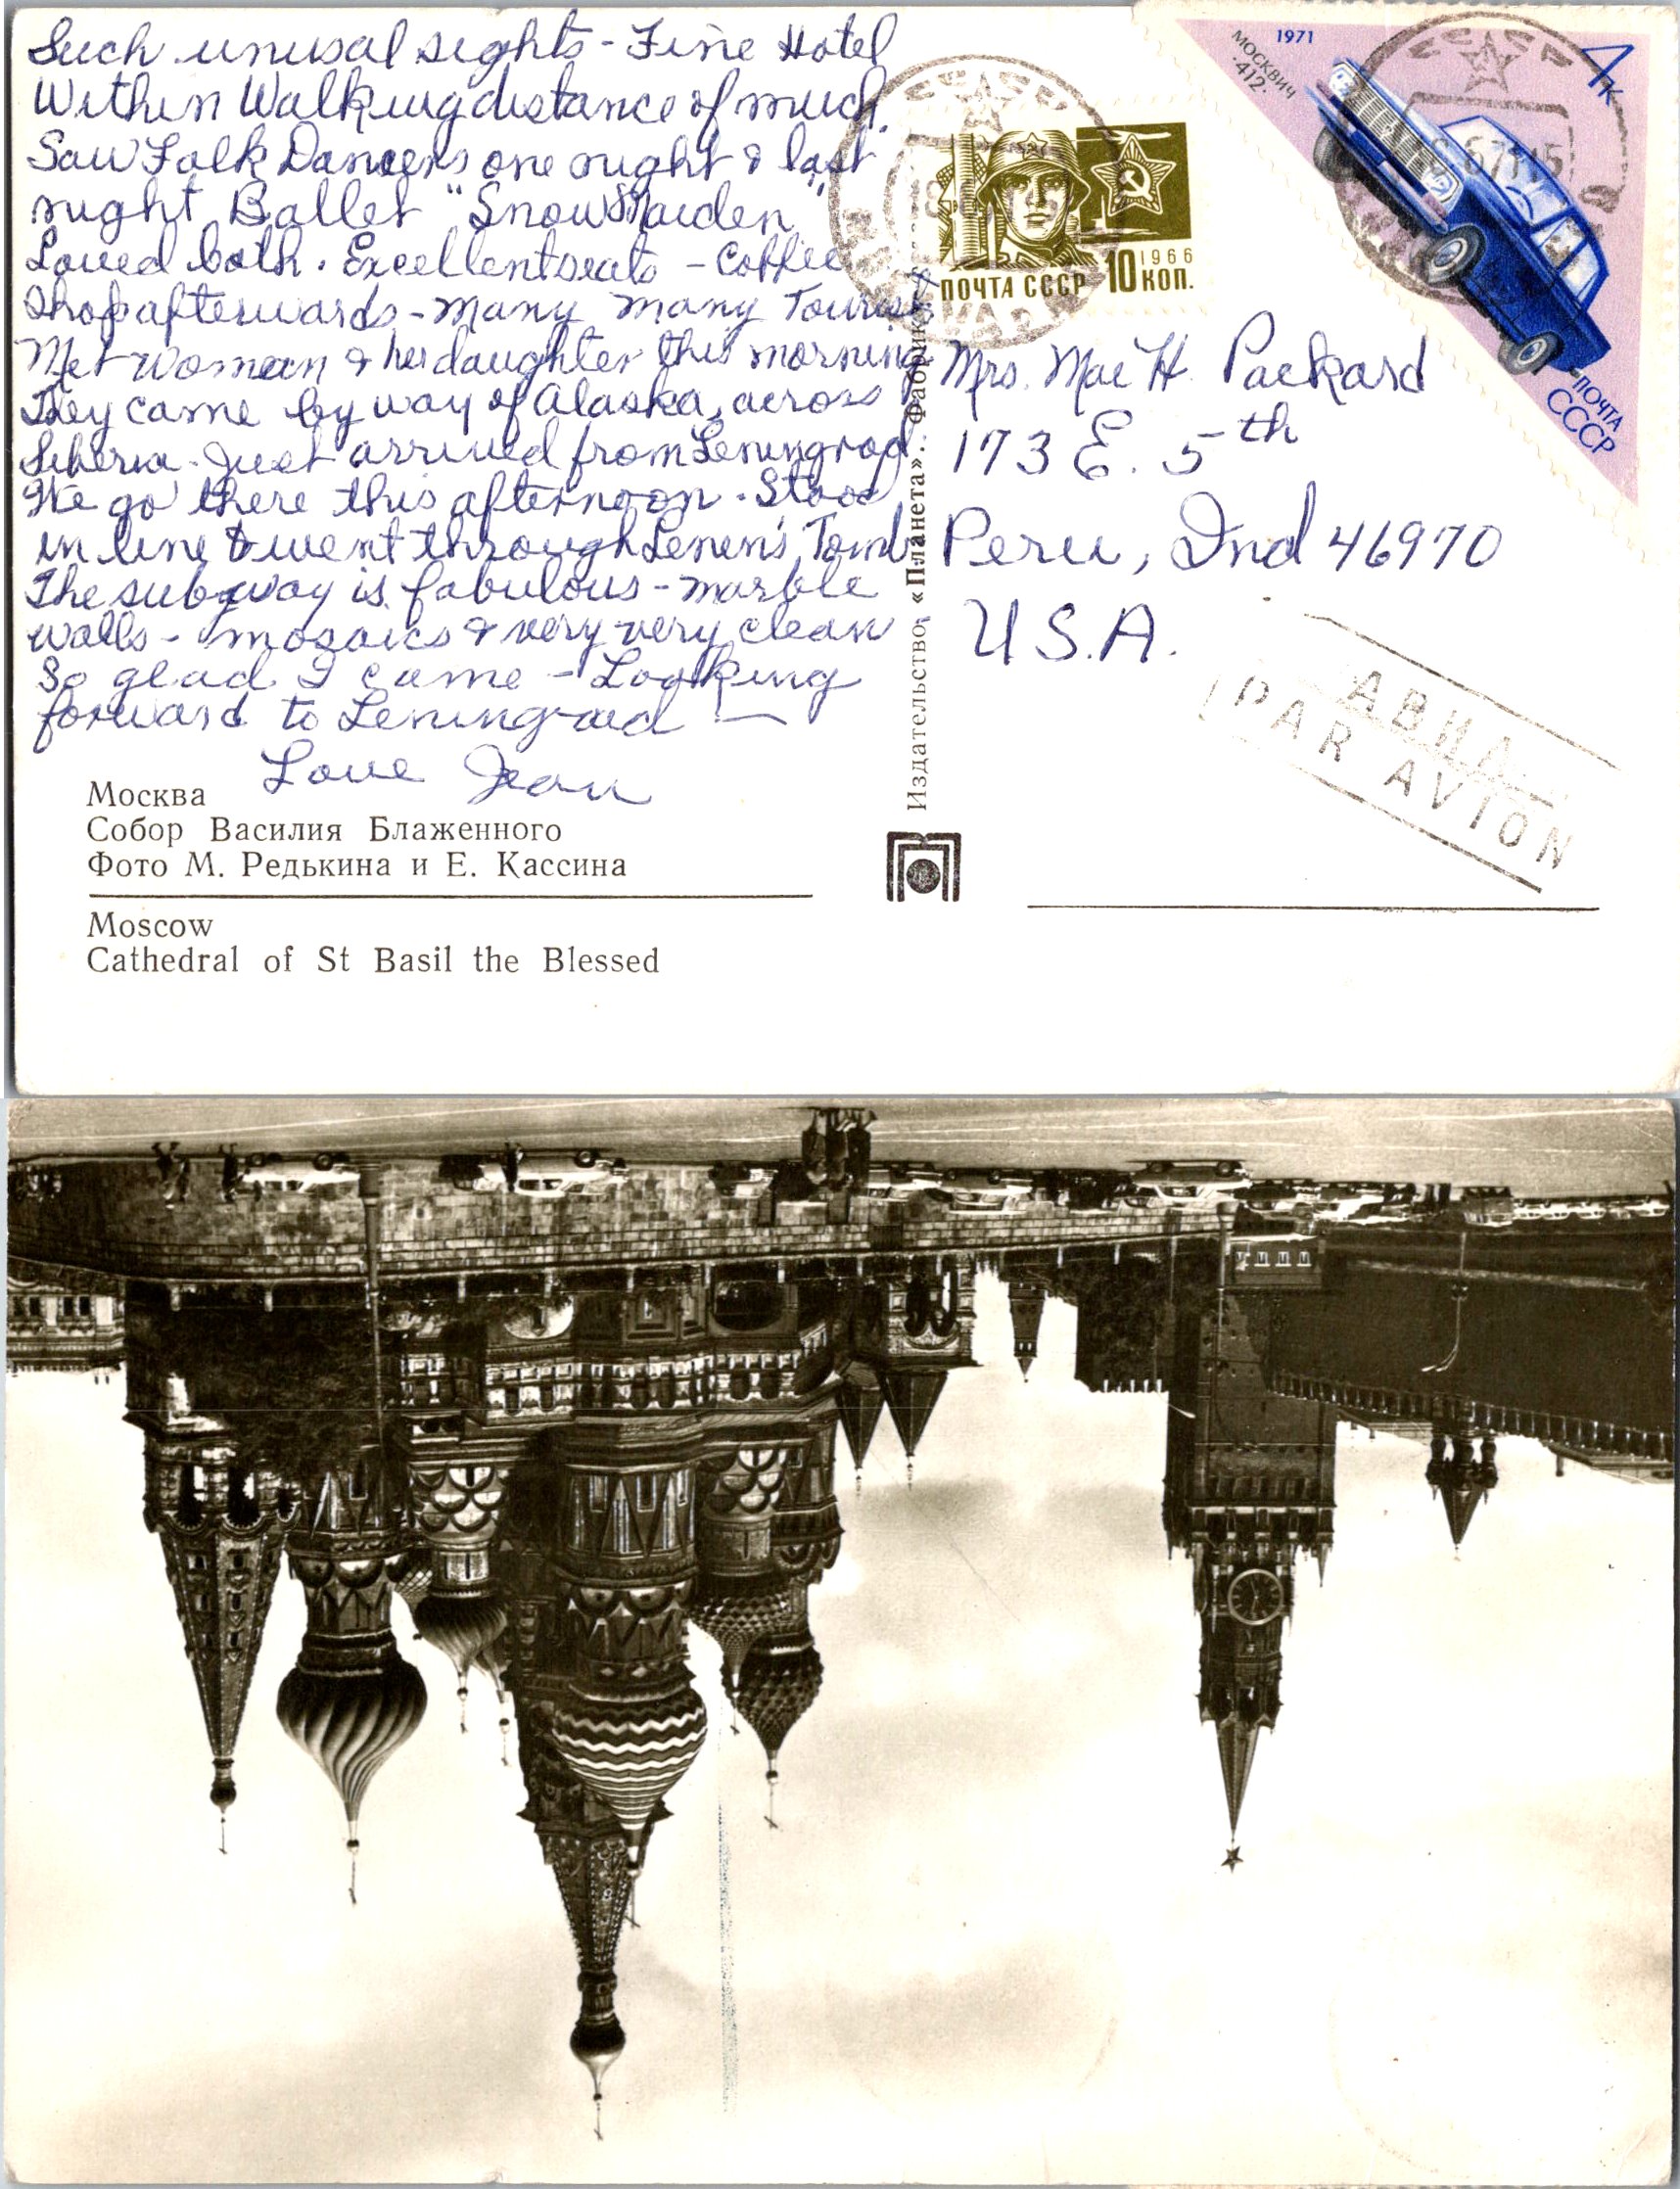 Such unusual sights - Fine Hotel
Within Walking distance of much.
Saw Folk Dancers one night & last
night Ballet "Snow Maiden"
Loved both. Excellent seats - Coffee
Shop afterwards - Many many Tourists
Met Woman & her daughter this morning
They came by way of Alaska, across
Siberia. Just arrived from Leningrad.
We go there this afternoon. Stood
in line & went through Lenen's Tomb
The subway is fabulous - marble
walls - mosaics & very very clean
So glad I came - Looking
forward to Leningrad —
Love Jean
Москва
Собор Василия Блаженного
Фото М. Редькина и Е. Кассина
Moscow
Cathedral of St Basil the Blessed
Издательство «Планета». Фабрика
СССР
1966
ПОЧТА СССР 10 КОП.
1971
МОСКВИЧ
·412·
4к
ПОЧТА
СССР
СССР
Mrs. Mae H. Packard
173 E. 5th
Peru, Ind 46970
U.S.A.
АВИА
PAR AVION